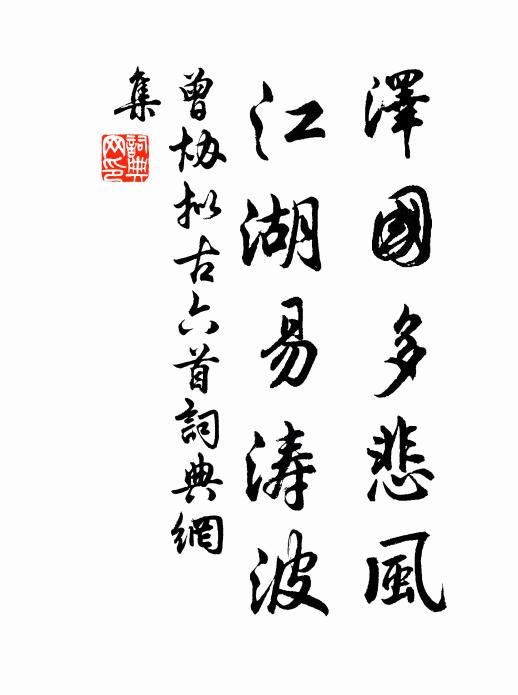 澤國多悲風
江湖易濤波
曾協拟古六首詞典網
集
詞典
网印